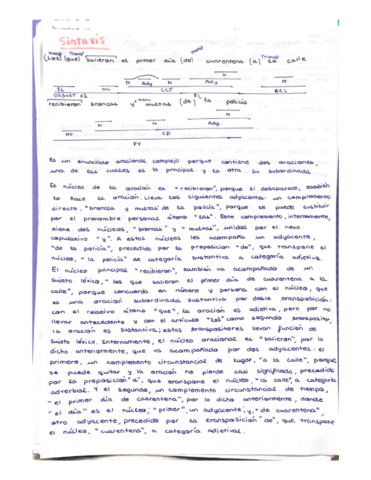 Sintaxis
Transp Transp Transp Transp
(Los) (que) salieran el primer día (de) cuarentena (a) la calle
N Ady N Ady N
SL NV CCT CCL
OSSust x2
recibieran broncas y multas (de) la policía
N N Ady.
NV CD
PV
Es un enunciado oracional complejo porque contiene dos oraciones,
una de las cuales es la principal y la otra su subordinada
El núcleo de la oración es "recibieran", porque si desaparece, también
lo hace la oración. Lleva los siguientes adyacentes: un complemento
directo, "broncas y multas de la policía", porque se puede sustituir
por el pronombre personal átono "las". Este complemento, internamente,
tiene dos núcleos, "broncas" y "multas", unidos por el nexo
copulativo "y". A estos núcleos les acompaña un adyacente,
"de la policía", precedido por la preposición "de", que transpone el
núcleo, "la policía" de categoría sustantiva a categoría adjetiva.
El núcleo principal "recibieran", también va acompañado de un
sujeto léxico, "los que salieran el primer día de cuarentena a la
calle", porque concuerda en número y persona con el núcleo, que
es una oración subordinada sustantiva por doble transposición:
con el relativo átono "que", la oración es adjetiva, pero por no
llevar antecedente y con el artículo "los" como segundo transpositor,
la oración es sustantiva; estos transpositores llevan función de
sujeto léxico. Internamente, el núcleo oracional es "salieran", por lo
dicho anteriormente, que va acompañado por dos adyacentes: el
primero, un complemento circunstancial de lugar, "a la calle", porque
se puede quitar y la oración no pierde casi significado, precedido
por la preposición "a", que transpone el núcleo, "la calle", a categoría
adverbial. Y el segundo, un complemento circunstancial de tiempo,
"el primer día de cuarentena", por lo dicho anteriormente, donde
"el día" es el núcleo; "primer", un adyacente; y, "de cuarentena",
otro adyacente, precedido por la transposición "de", que transpone
el núcleo, "cuarentena", a categoría adjetival.